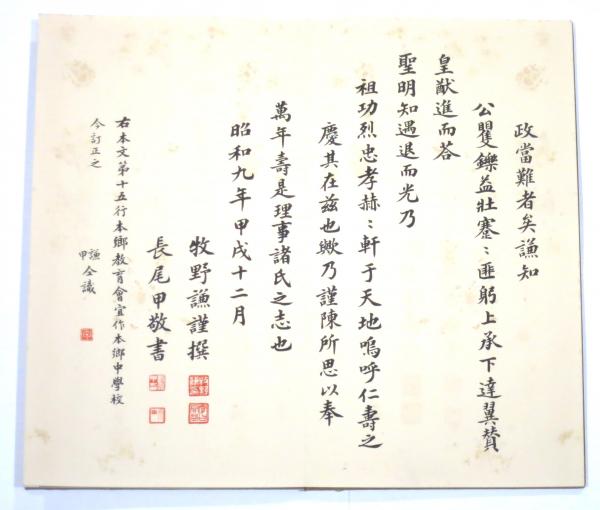 政當難者矣謙知
公矍鑠益壯蹇〻匪躬上承下達翼賛
皇猷進而荅
聖明知遇退而光乃
祖功烈忠孝赫〻軒于天地嗚呼仁壽之
慶其在茲也歟乃謹陳所思以奉
萬年壽是理事諸氏之志也
昭和九年甲戌十二月
牧野謙謹撰
長尾甲敬書
右本文第十五行本鄉教育會宜作本鄉中學校
今訂正之
謙
甲 仝議